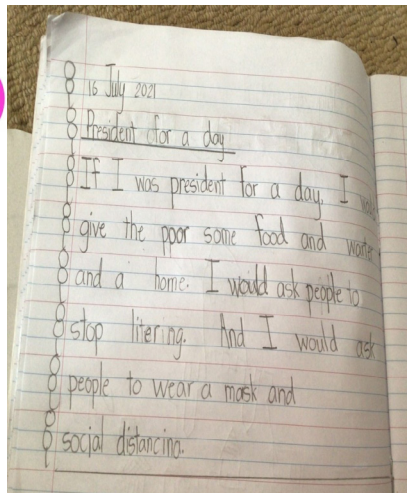 16 July 2021
President for a day
If I was president for a day, I would
give the poor some food and warter
and a home. I would ask people to
stop litering. And I would ask
people to wear a mask and
social distancing.